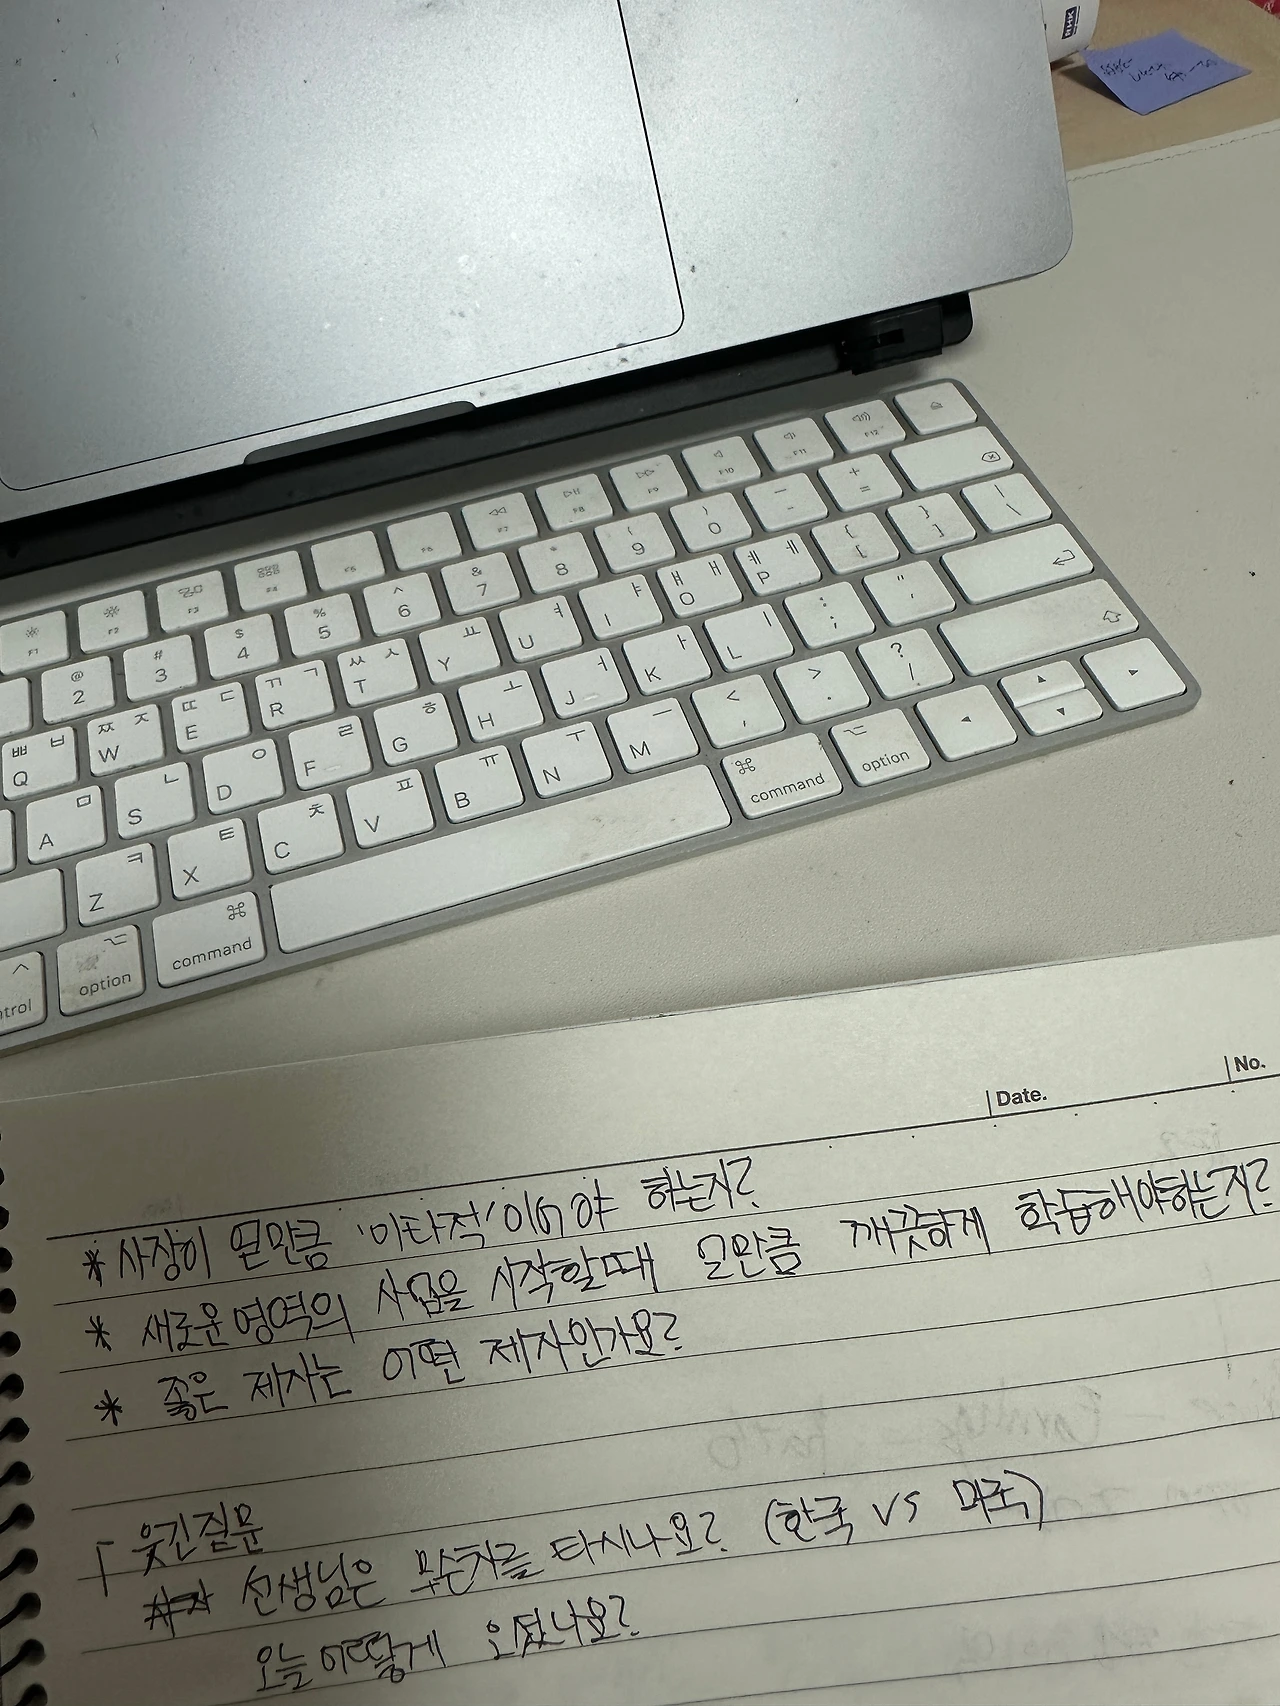 F12
F11
F10
F9
F8
F7
F6
F5
F4
F3
F2
F1
+ =
- _
) 0
( 9
* 8
& 7
^ 6
% 5
$ 4
# 3
@ 2
ㅃ ㅂ Q
ㅉ ㅈ W
ㄸ ㄷ E
ㄲ ㄱ R
ㅆ ㅅ T
ㅛ Y
ㅕ U
ㅑ I
ㅒ ㅐ O
ㅖ ㅔ P
{ [
} ]
| \
ㅁ A
ㄴ S
ㅇ D
ㄹ F
ㅎ G
ㅗ H
ㅓ J
ㅏ K
ㅣ L
: ;
" '
ㅋ Z
ㅌ X
ㅊ C
ㅍ V
ㅠ B
ㅜ N
ㅡ M
< ,
> .
? /
option
command
command
option
Date.
No.
* 사장이 얼만큼 '이타적'이어야 하는지?
* 새로운 영역의 사업을 시작할때 얼만큼 깨끗하게 학습해야하는지?
* 좋은 제자는 어떤 제자인가요?
웃긴질문
선생님은 무슨차를 타시나요? (한국 VS 미국)
오늘 어떻게 오셨나요?